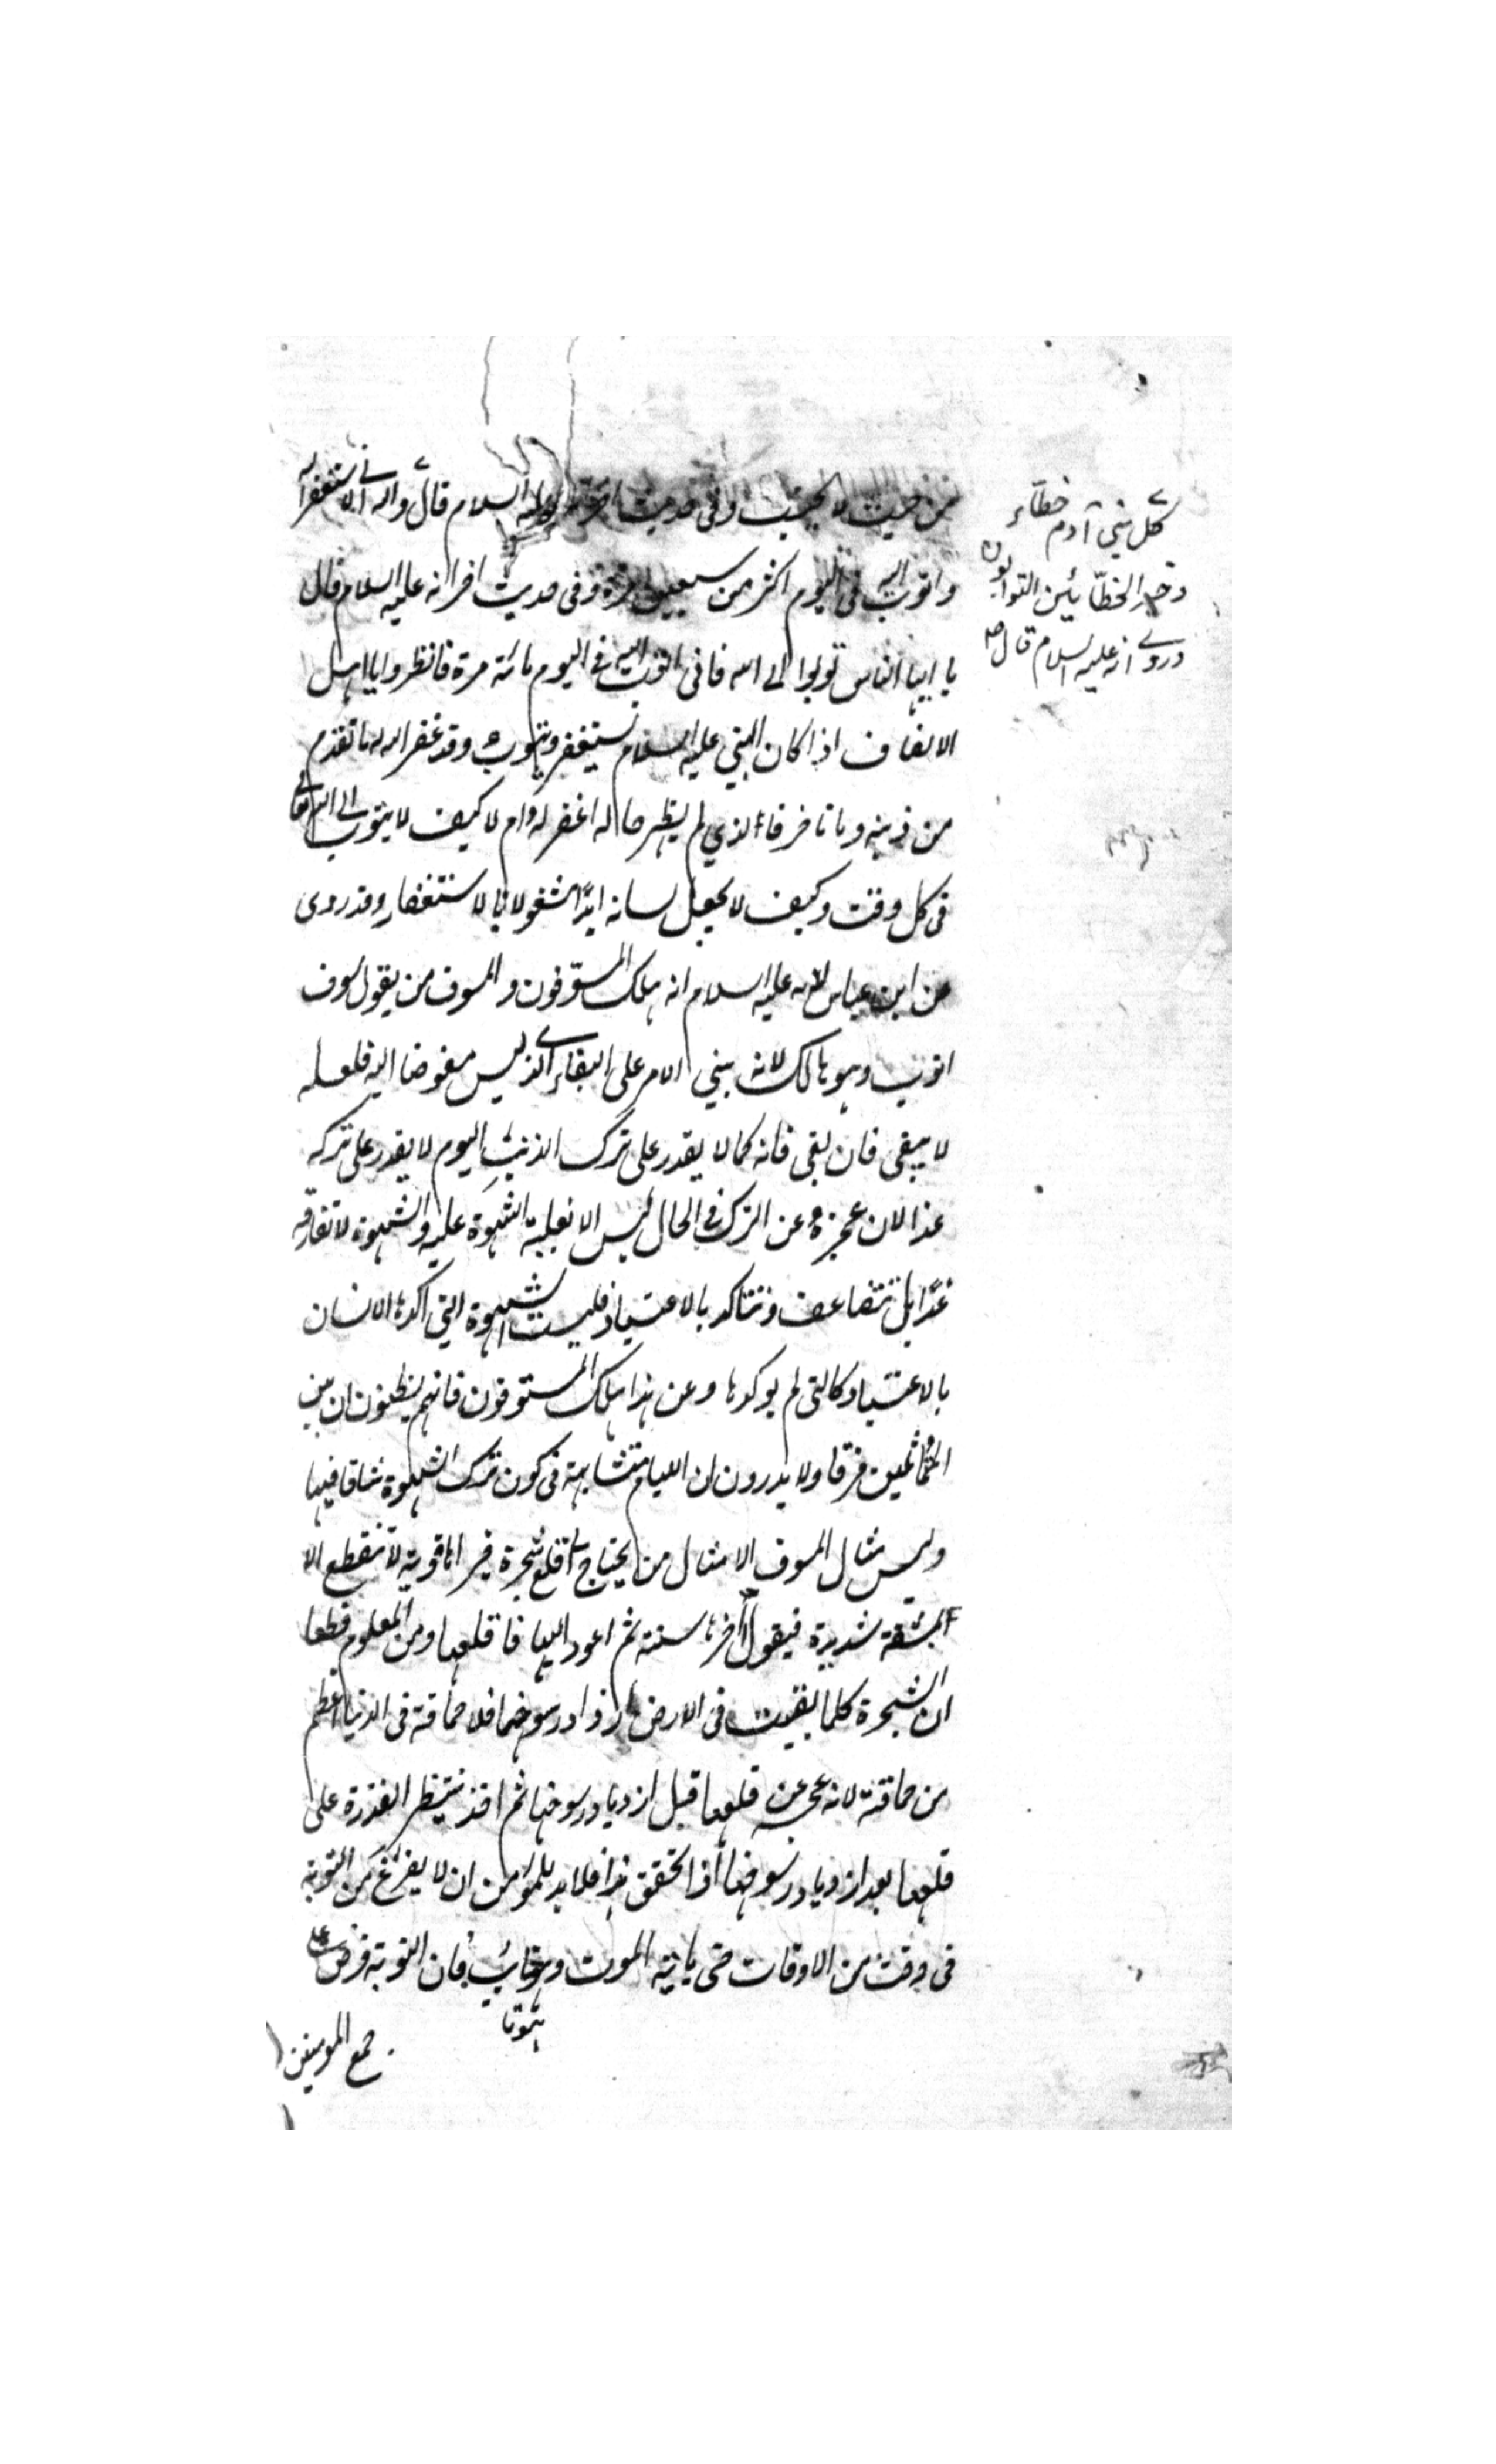 من حيث لا يحتسب وفى حديث اخر انه عليه السلام قال والله انى لاستغفر الله
واتوب اليه فى اليوم اكثر من سبعين مرة وفى حديث اخر انه عليه السلام قال
يا ايها الناس توبوا الى الله فانى اتوب اليه فى اليوم مائة مرة فانظروا يا اهل
الانصاف اذا كان النبي عليه السلام يستغفر ويتوب وقد غفر الله له ما تقدم
من ذنبه وما تاخر فالذي لم يظهر حاله اغفر له ام لا كيف لا يتوب الى الله تعالى
فى كل وقت وكيف لا يجعل لسانه ابدًا مشغولا بالاستغفار وقد روى
عن ابن عباس انه عليه السلام انه هلك المسوّفون والمسوف من يقول سوف
اتوب وهو هالك لانه يبني الامر على البقاء الذي ليس مفوضا اليه فلعله
لا يبقى فان بقى فانه كما لا يقدر على ترك الذنب اليوم لا يقدر على تركه
غدا لان عجزه عن الترك فى الحال ليس الا لغلبة الشهوة عليه والشهوة لا تفارقه
غدًا بل تتضاعف وتتاكد بالاعتياد فليست الشهوة التي اكدها الانسان
بالاعتياد كالتى لم يوكدها وعن هذا هلك المسوفون فانهم يظنون ان بين
المتماثلين فرقا ولا يدرون ان الايام متشابهة فى كون ترك الشهوة شاقا فيها
وليس مثال المسوف الا مثال من يحتاج الى قلع شجرة فيراها قوية لا تنقطع الا
بمشقة شديدة فيقول اؤخرها سنة ثم اعود اليها فاقلعها ومن المعلوم قطعا
ان الشجرة كلما بقيت فى الارض ازداد رسوخها فلا حماقة فى الدنيا اعظم
من حماقته لانه عجز عن قلعها قبل ازدياد رسوخها ثم اخذ ينتظر القدرة على
قلعها بعد ازدياد رسوخها اذا تحقق هذا فلا بد للمؤمن ان لا يفرغ عن التوبة
فى وقت من الاوقات حتى ياتيه الموت وهو تائب فان التوبة فرض على
جمع المومنين
كل بني آدم خطاء
وخير الخطّائين التوابون
وروي انه عليه السلام قال